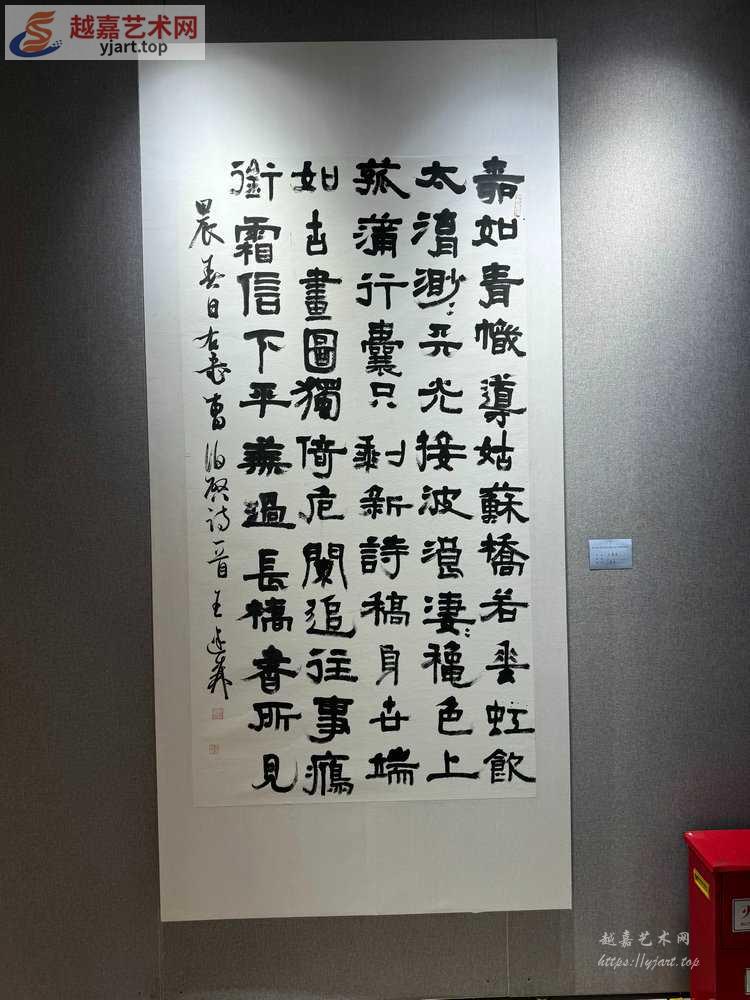 越嘉艺术网
yjart.top
如青幟導姑蘇橋若垂虹飲
太湖渺:天光接波浪淒:穐色上
菰蒲行囊只剩新詩稿身世端
如古畫圖獨倚危闌追往事鴈
銜霜信下平蕪過長橋書所見
甲辰春日右录曹伯啓詩一首王
越嘉艺术网
https://yjart.top